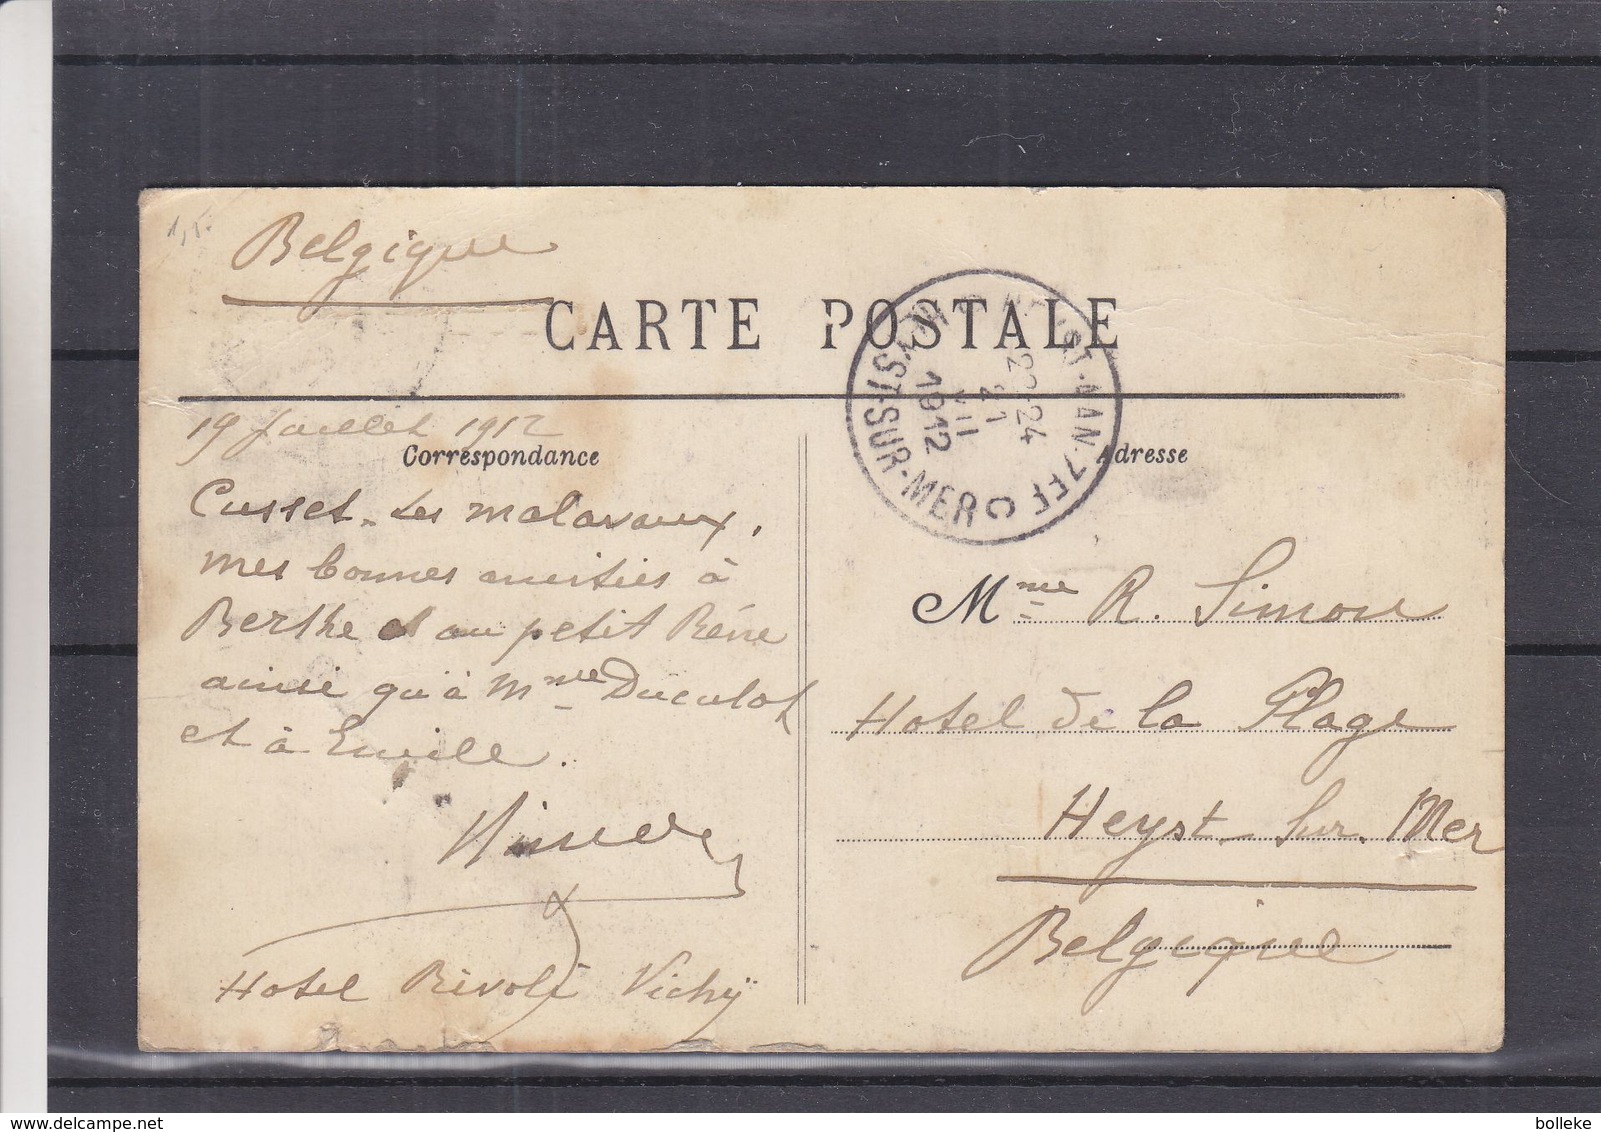 Belgique
CARTE POSTALE
HEYST-AAN-ZEE
HEYST-SUR-MER C
22-24
21
VII
1912
19 Juillet 1912
Correspondance
Adresse
Cusset. Les Malavaux.
Mes bonnes amitiés à
Berthe et au petit Réne
ainsi qu'à Mme Duculot
et à Emile.
Hotel Rivoli Vichy
Mme R. Simon
Hotel de la Plage
Heyst. Sur. Mer
Belgique
bolleke